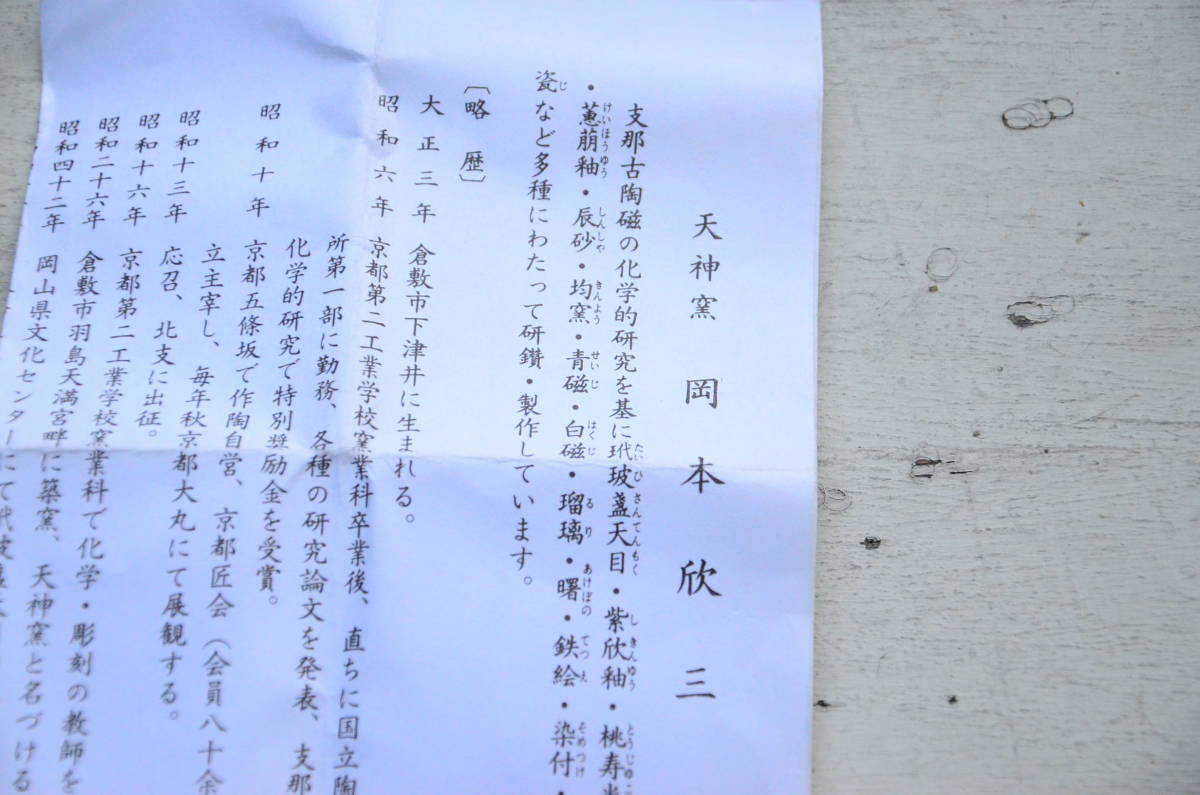 天神窯 岡本欣三
支那古陶磁の化学的研究を基に玳玻盞天目・紫欣釉・桃寿
・蔥萠釉・辰砂・均窯・青磁・白磁・瑠璃・曙・鉄絵・染付・
瓷など多種にわたって研鑽・製作しています。
〔略歴〕
大正三年 倉敷市下津井に生まれる。
昭和六年 京都第二工業学校窯業科卒業後、直ちに国立陶
所第一部に勤務、各種の研究論文を発表、支那
化学的研究で特別奨励金を受賞。
昭和十年 京都五條坂で作陶自営、京都匠会（会員八十余
立主宰し、毎年秋京都大丸にて展観する。
昭和十三年 応召、北支に出征。
昭和十六年 京都第二工業学校窯業科で化学・彫刻の教師を
昭和二十六年 倉敷市羽島天満宮畔に築窯、天神窯と名づける
昭和四十二年 岡山県文化センターにて玳玻盞